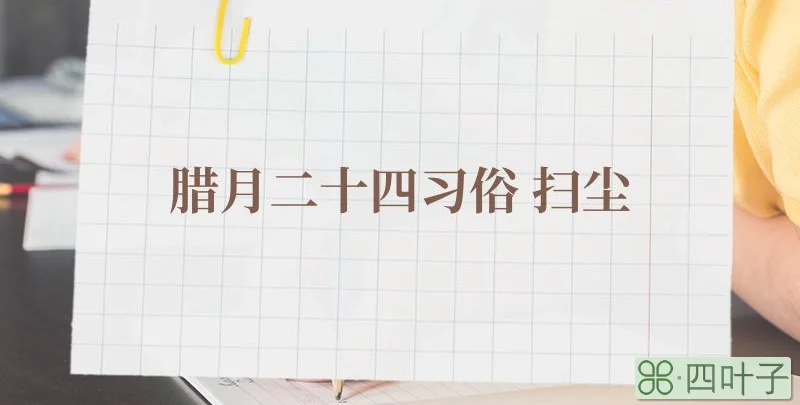 腊月二十四习俗 扫尘
四叶子